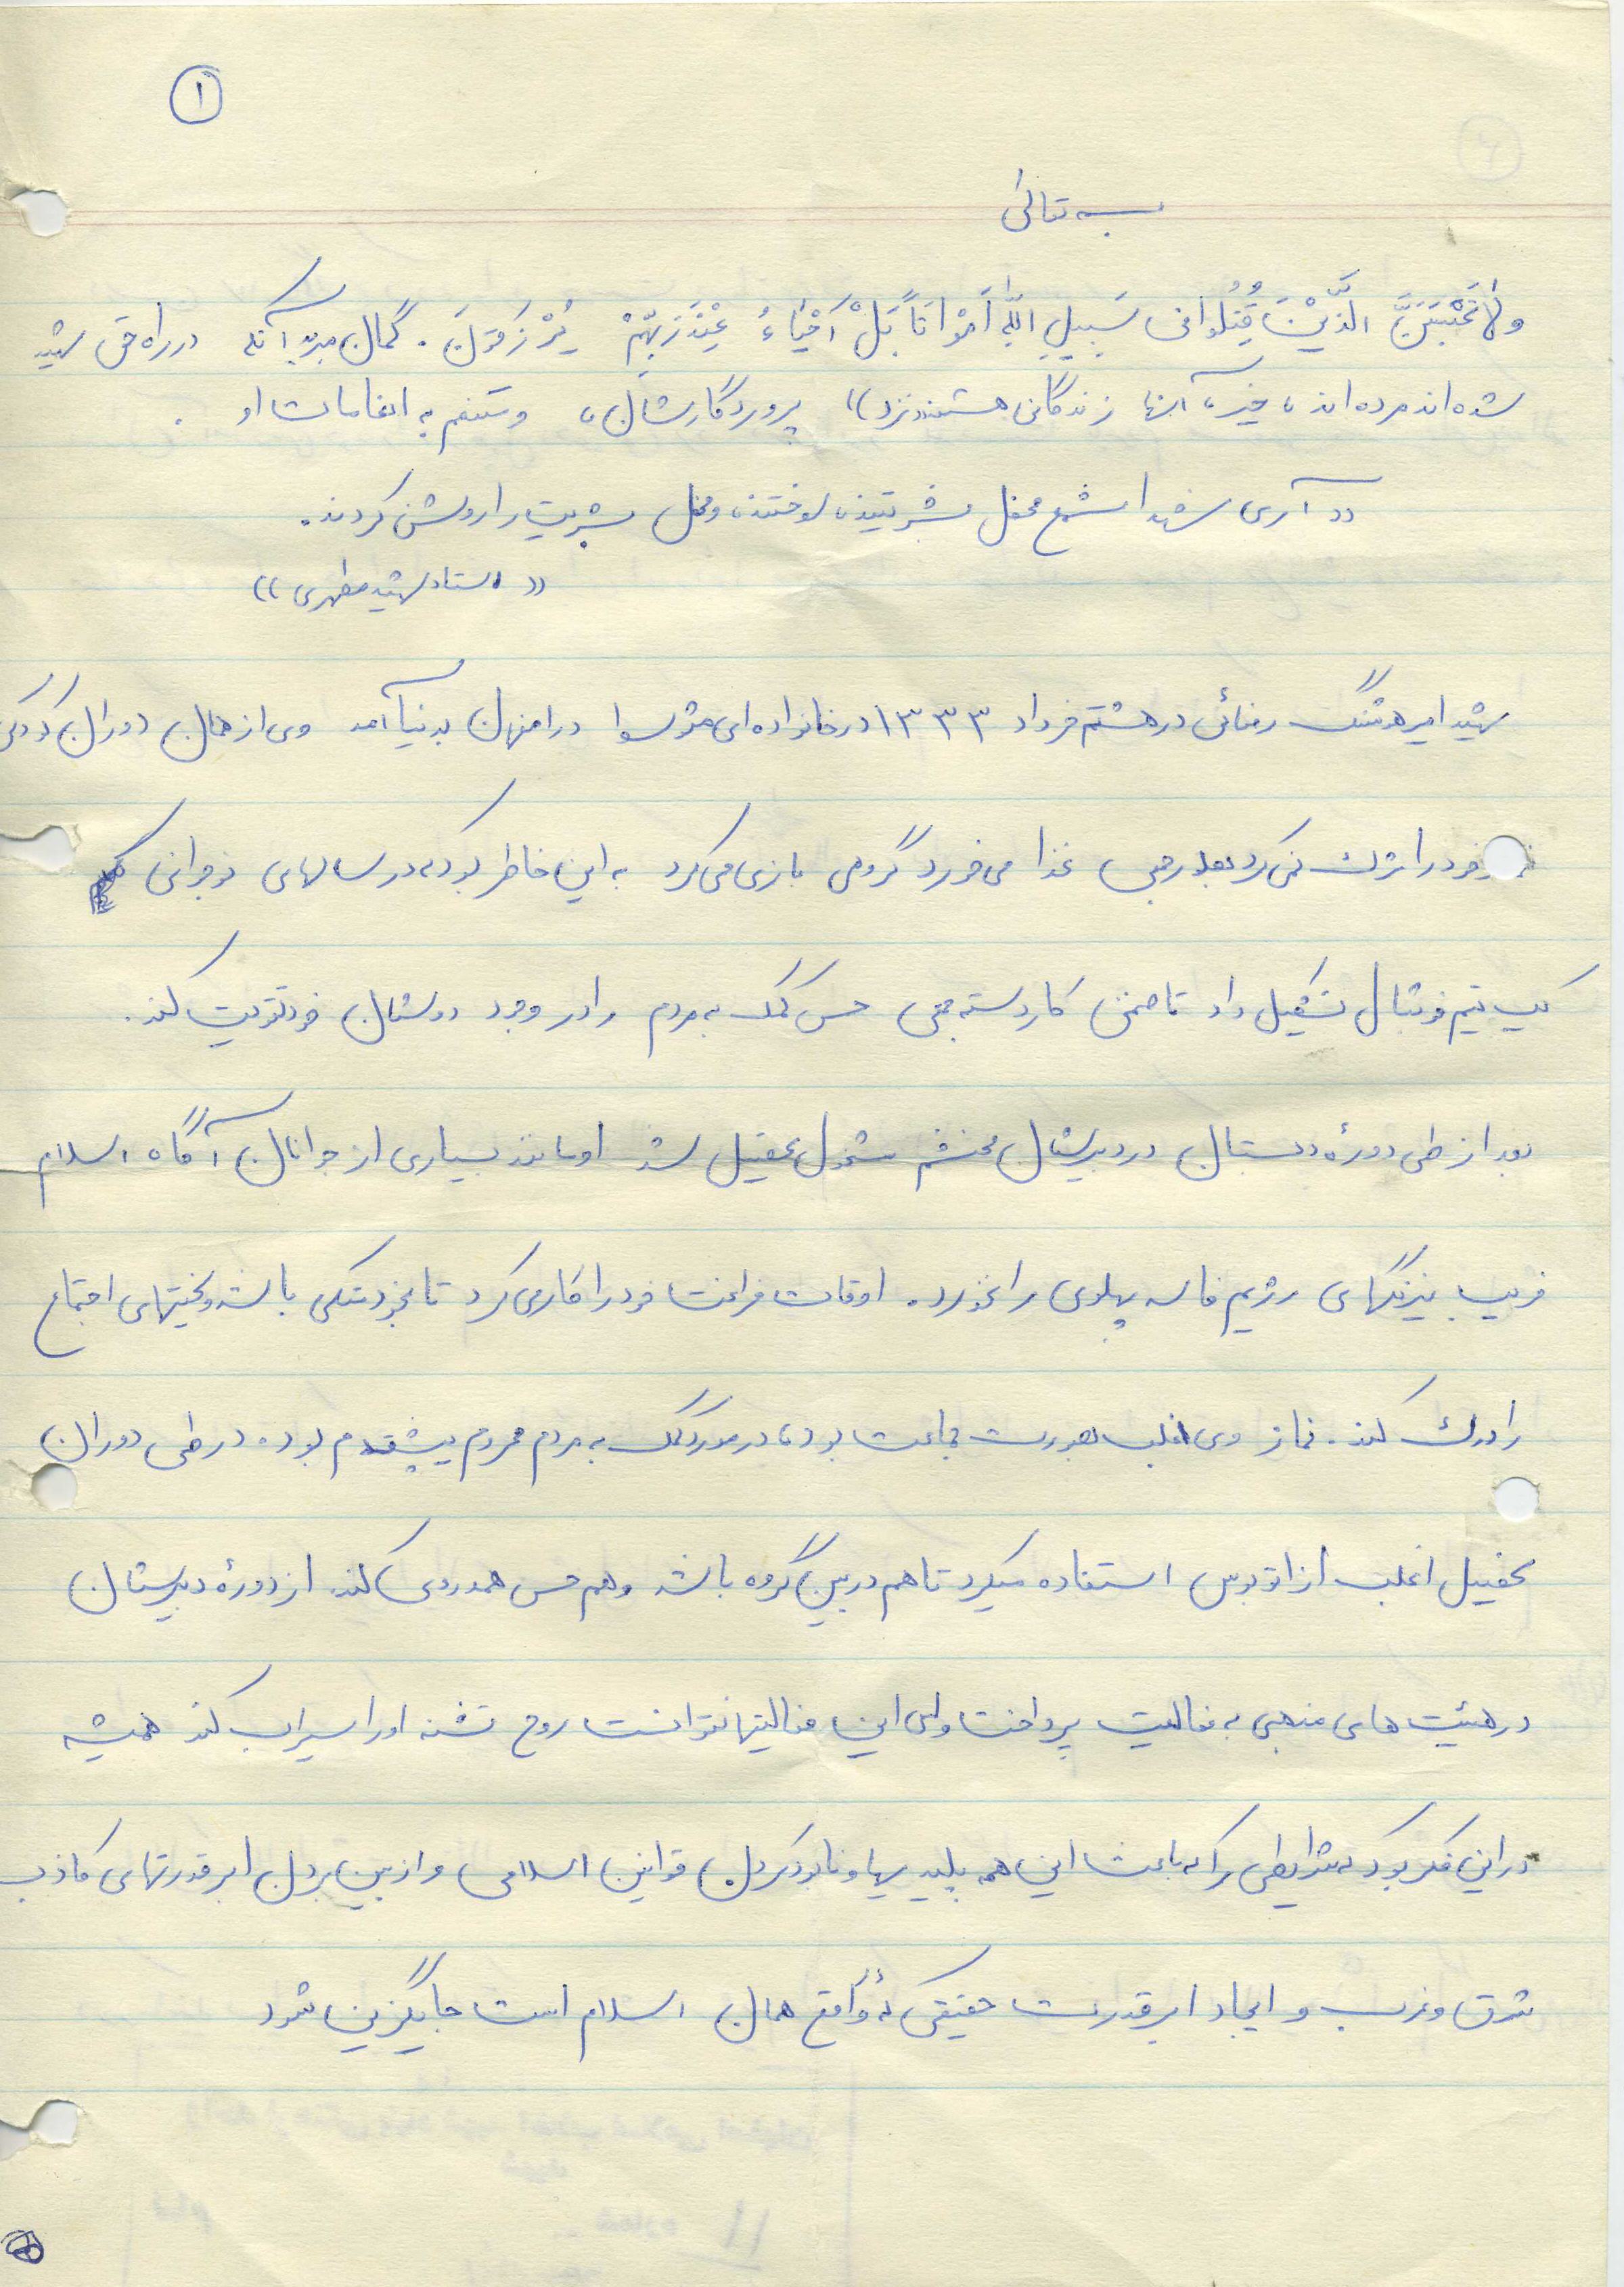 ۱
بسمه تعالی
ولا تَحْسَبَنَّ الَّذینَ قُتِلُوا فی سَبیلِ اللّهِ اَمْواتاً بَلْ اَحْیاءٌ عِنْدَ رَبِّهِمْ یُرْزَقونَ . گمان مبرید آنانکه در راه حق شهید
شده‌اند مرده‌اند ، خیر ، آنها زندگانی هستند نزد (( پروردگارشان ، و متنعم به انعامات او .
(( آری شهدا شمع محفل بشریتند ، سوختند ، و محفل بشریت را روشن کردند .
(( استاد شهید مطهری ))
شهید امیر هوشنگ رضائی در هشتم خرداد ۱۳۳۳ در خانواده‌ای متوسط در اصفهان بدنیا آمد وی از همان دوران کودکی
خود را ترک نمی‌کرد بعد از غذا می‌خورد گروهی بازی می‌کرد به این خاطر بود که در سالهای نوجوانی
یک تیم فوتبال تشکیل داد تا ضمن کار دسته جمعی حس کمک به مردم را در وجود دوستان خود تقویت کند .
بعد از طی دورهٔ دبستان در دبیرستان محتشم مشغول تحصیل شد او مانند بسیاری از جوانان آگاه اسلام
فریب نیرنگهای رژیم فاسد پهلوی را نخورد . اوقات فراغت خود را کار می‌کرد تا بخود متکی باشد و سختیهای اجتماع
را درک کند . نماز وی اغلب بصورت جماعت بود ، در مورد کمک به مردم محروم پیشقدم بود . در طی دوران
تحصیل اغلب از اتوبوس استفاده میکرد تا هم در بین گروه باشد و هم حس همدردی کند . از دورهٔ دبیرستان
در هیئت های مذهبی به فعالیت پرداخت ولی این فعالیتها نتوانست روح تشنه او را سیراب کند همیشه
در این فکر بود که شرایطی را که باعث این همه پلیدیها و نابود کردن قوانین اسلامی و از بین بردن ابرقدرتهای کاذب
شرق و غرب و ایجاد ابرقدرت حقیقی که در واقع همان اسلام است جایگزین شود